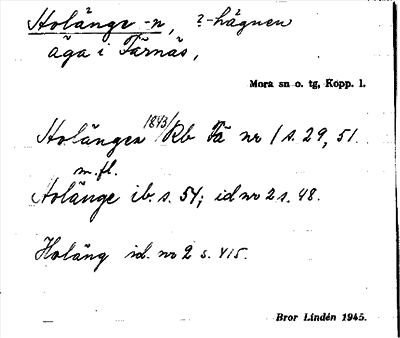 Holänge -n, ?-hägnen
äga i Färnäs,
Mora sn o. tg, Kopp. l.
Holängen 1843/ Rb Fä nr 1 s. 29, 51.
m. fl.
Holänge ib. s. 54; id nr 2 s. 48.
Holäng id. nr 2 s. 415.
Bror Lindén 1945.